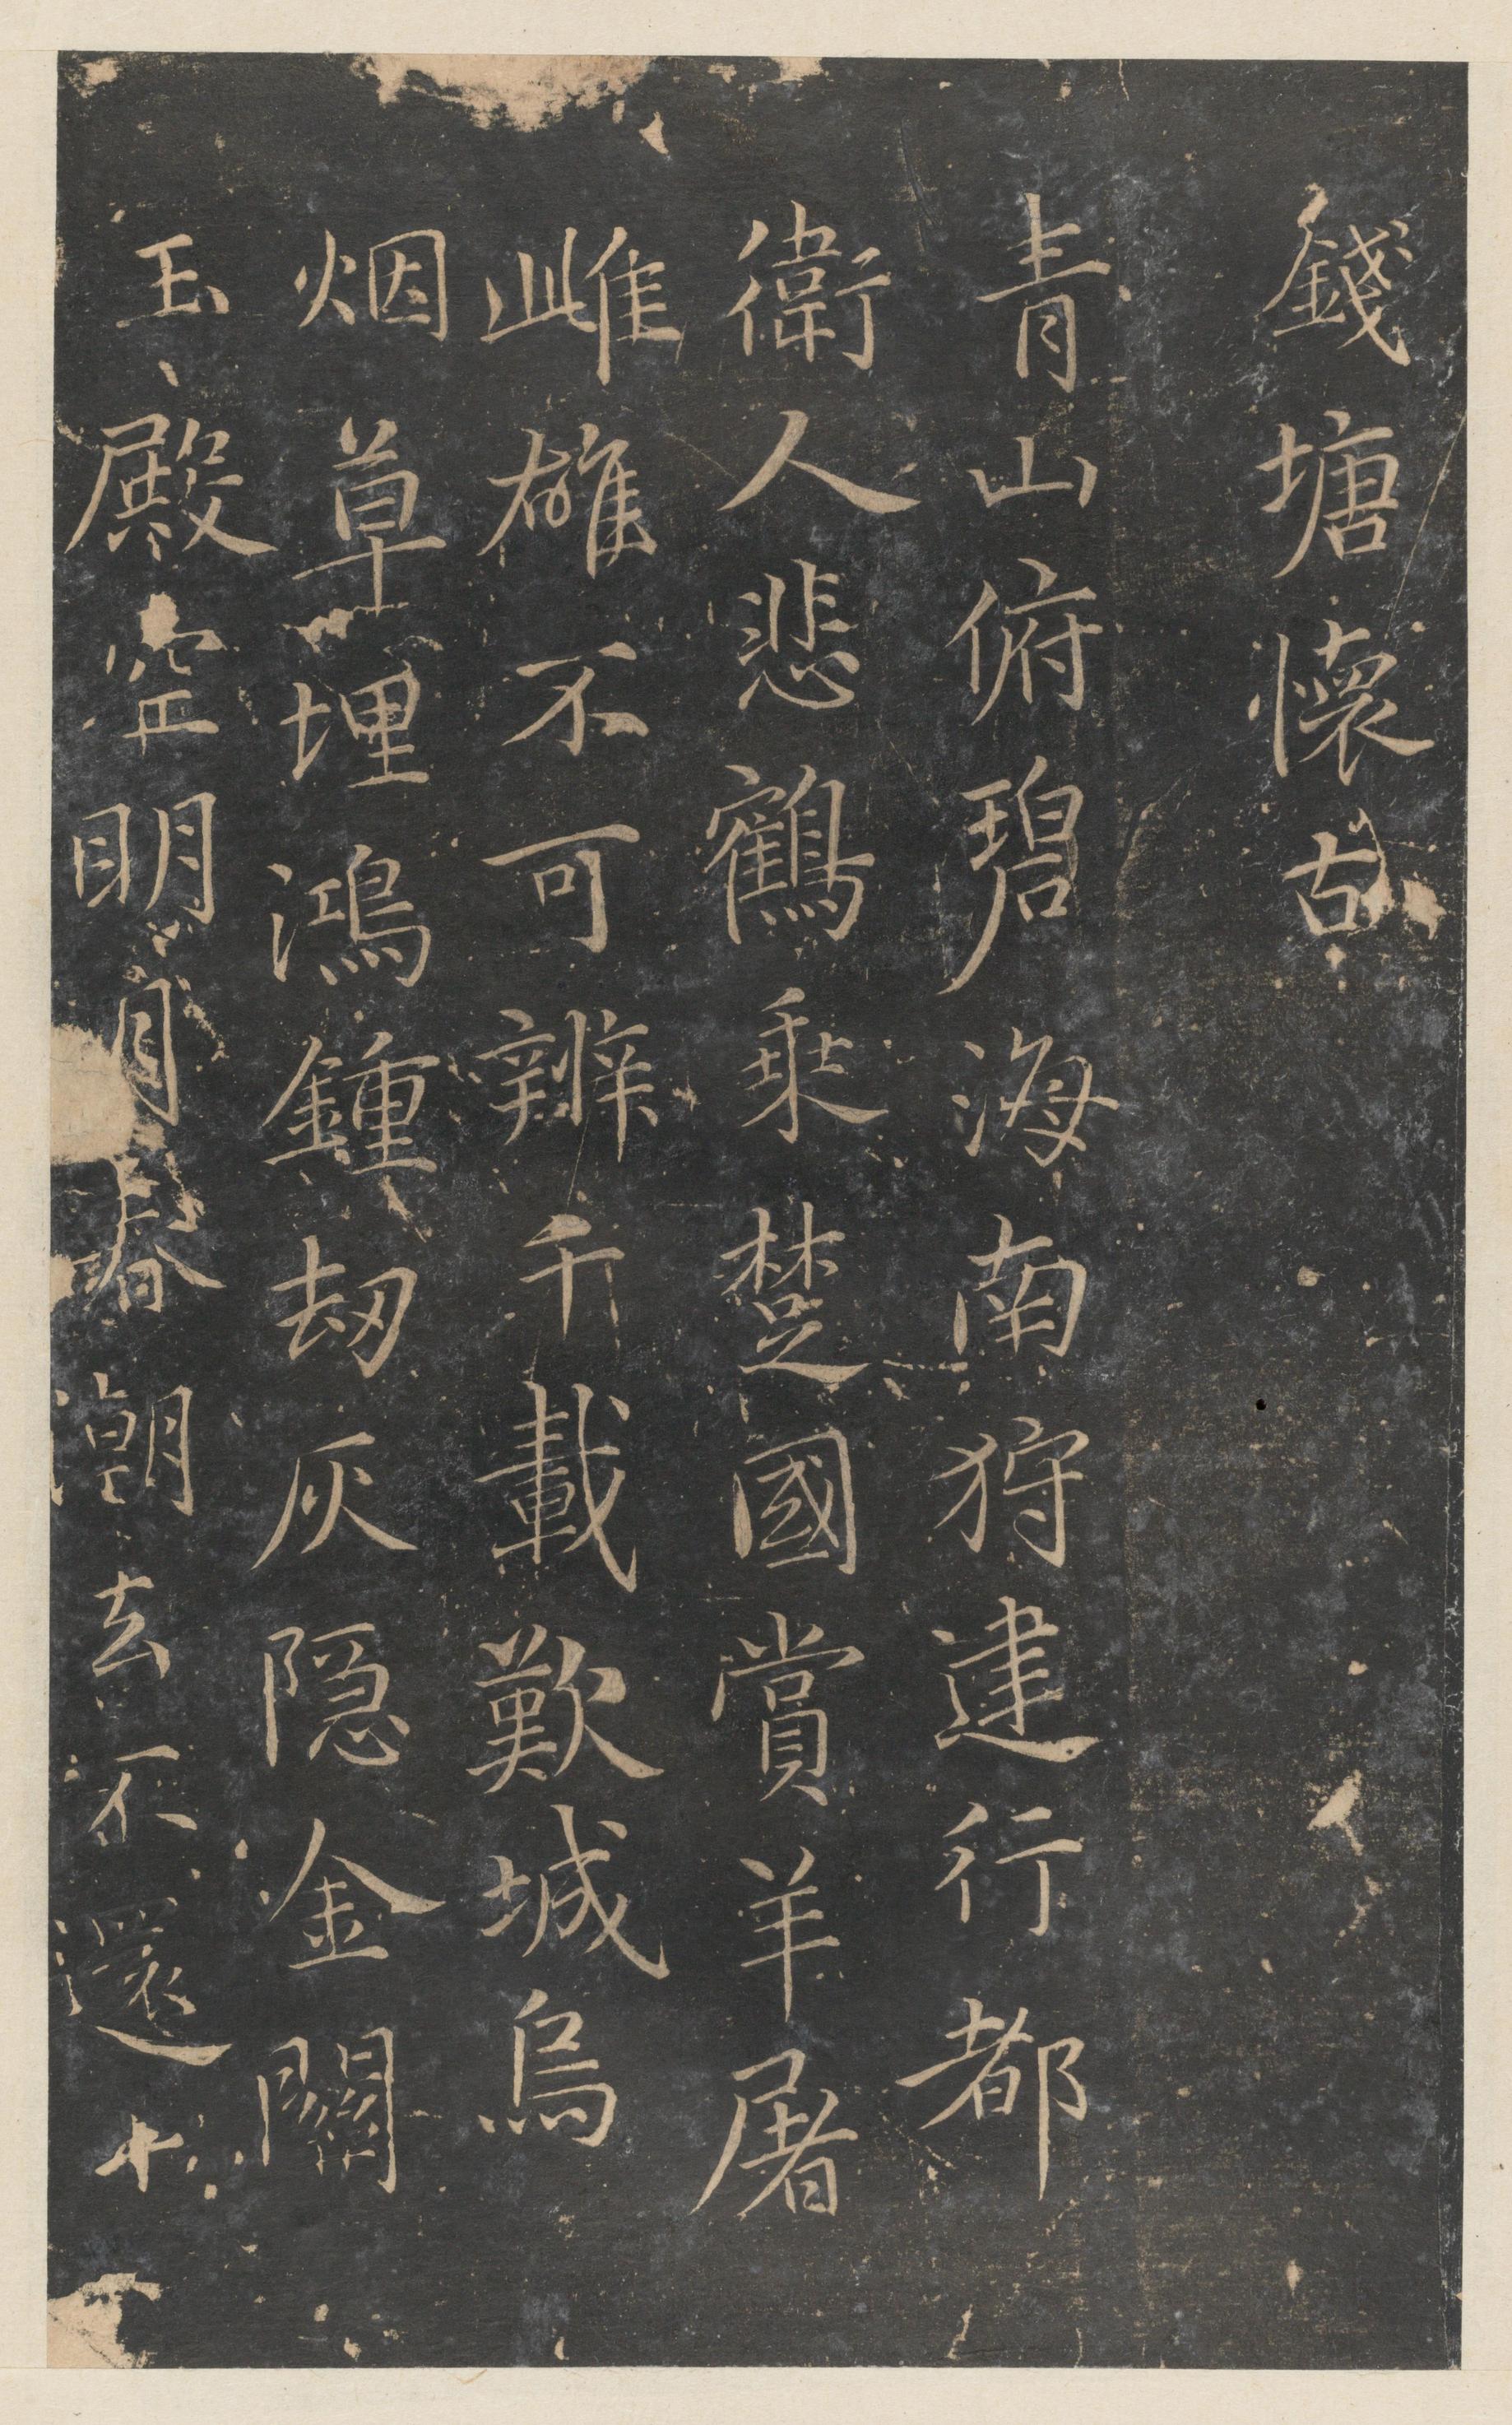 錢塘懷古
青山俯碧海南狩建行都
衛人悲鶴乘楚國賞羊屠
雌雄不可辨千載歎城烏
烟草埋鴻鍾劫灰隐金闕
玉殿空明月春潮去不還